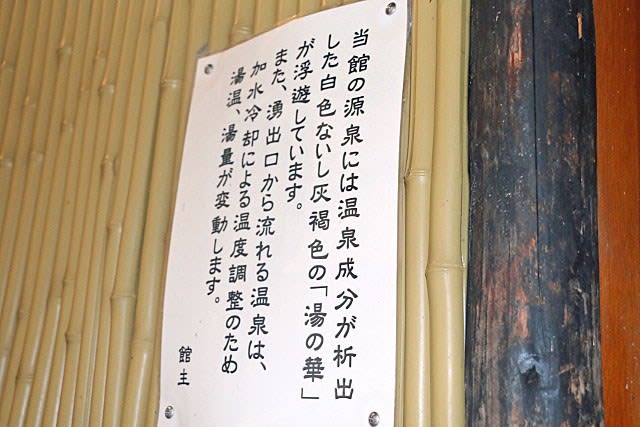 当館の源泉には温泉成分が析出
した白色ないし灰褐色の「湯の華」
が浮遊しています。
また、湧出口から流れる温泉は、
加水冷却による温度調整のため
湯温、湯量が変動します。
館主